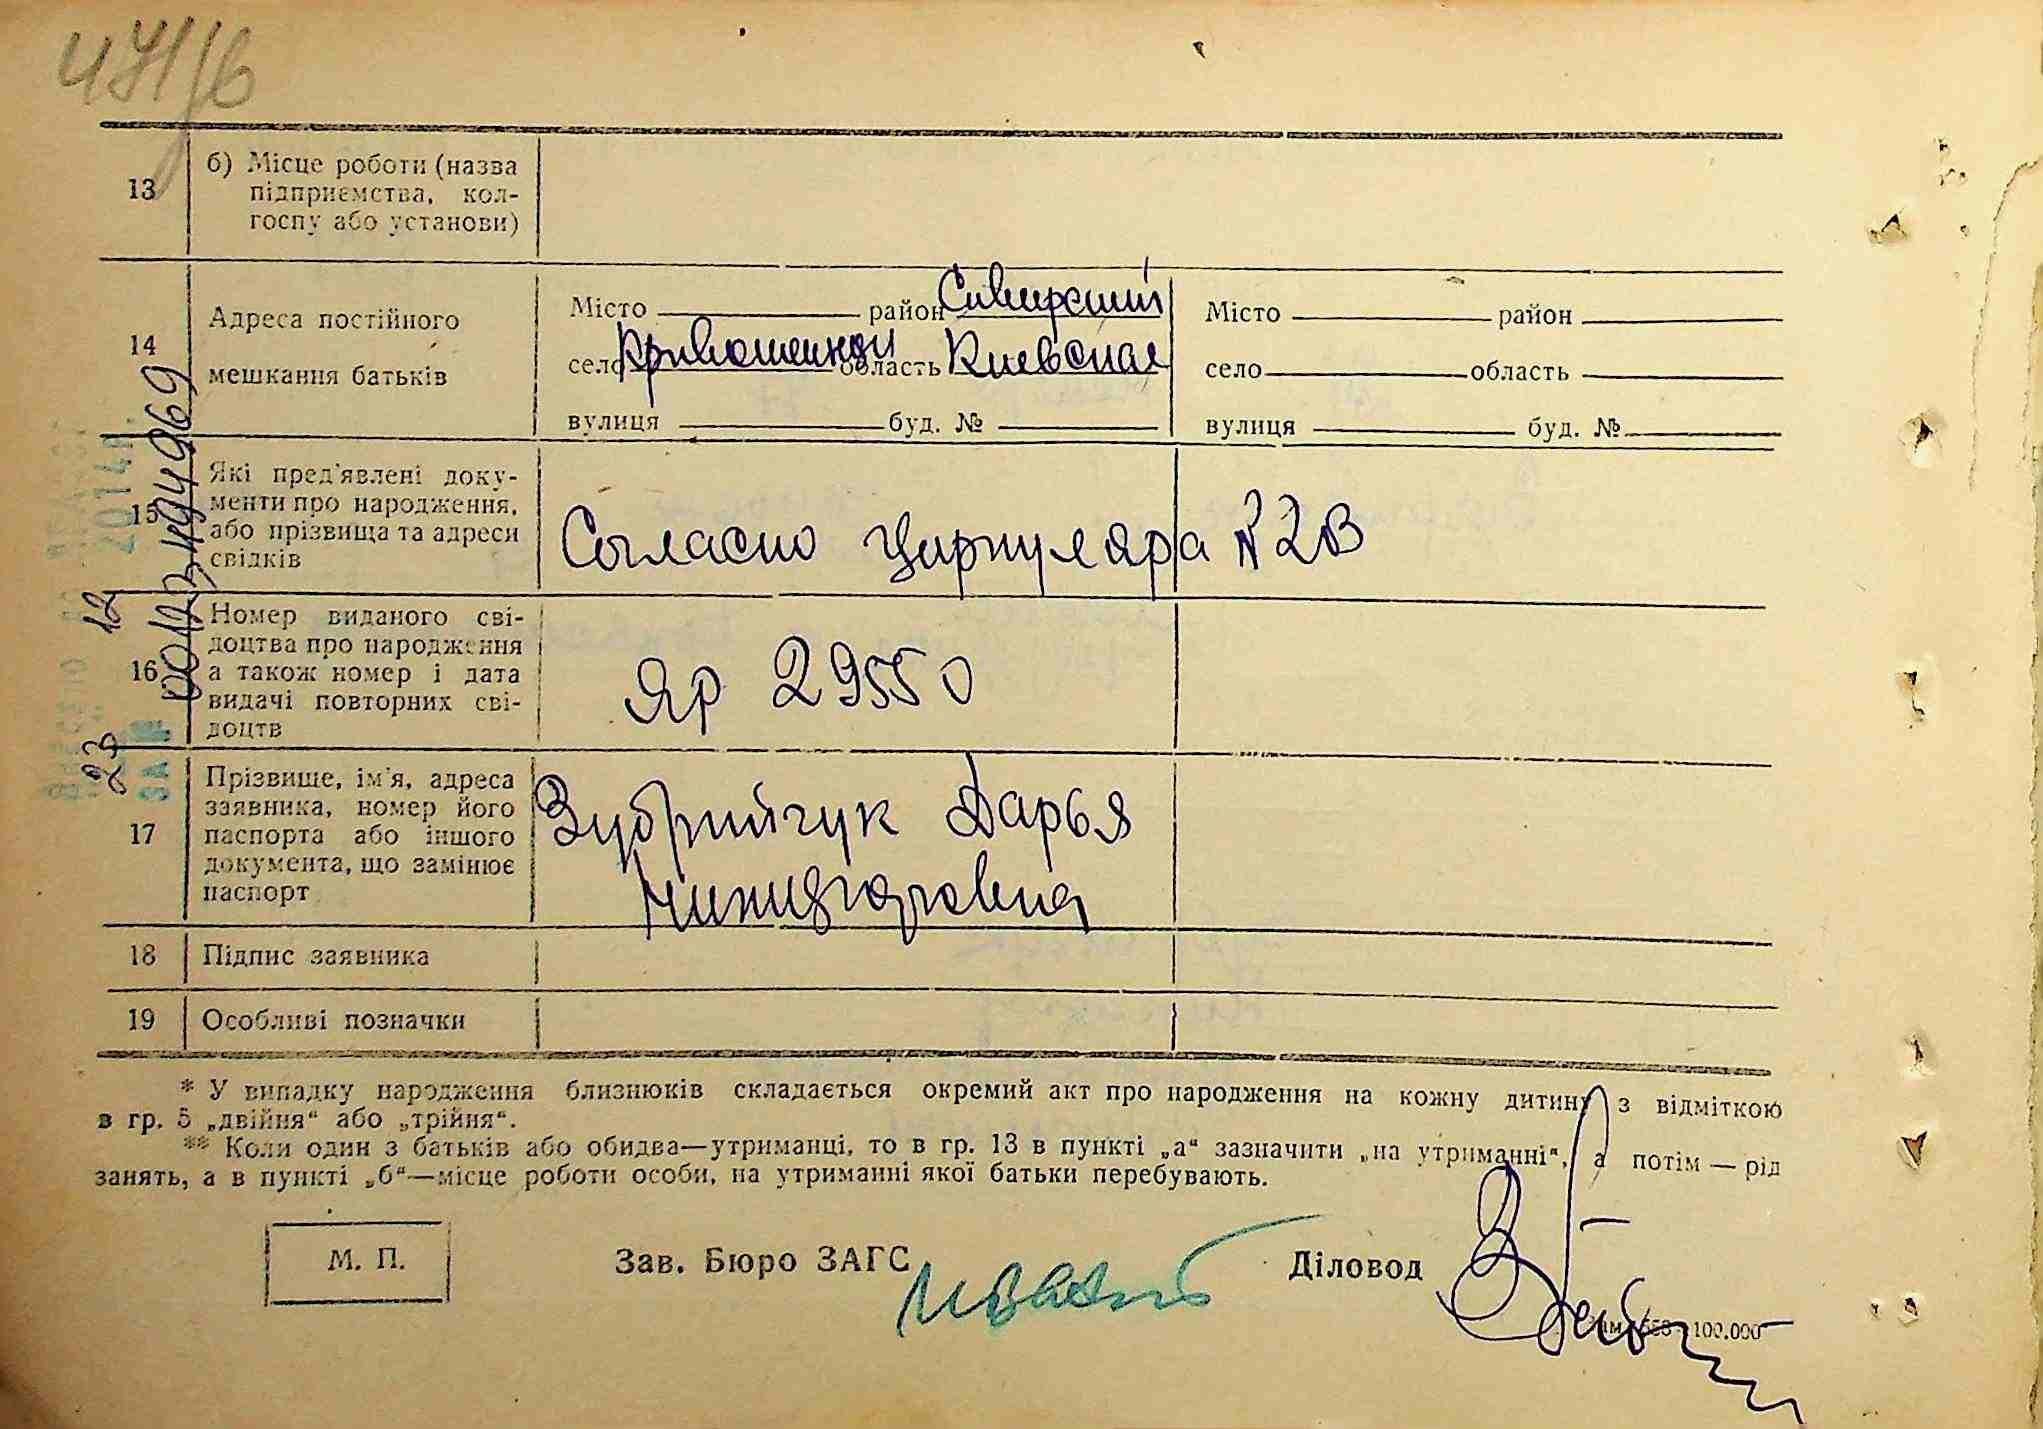 13
б) Місце роботи (назва
підприємства, кол-
госпу або установи)
14
Адреса постійного
мешкання батьків
Місто район Сквирский
село область Киевская
вулиця буд. №
Місто район
село область
вулиця буд. №
15
Які пред'явлені доку-
менти про народження,
або прізвища та адреси
свідків
Согласно циркуляра №2В
16
Номер виданого сві-
доцтва про народження
а також номер і дата
видачі повторних сві-
доцтв
ЯР 29550
17
Прізвище, ім'я, адреса
заявника, номер його
паспорта або іншого
документа, що замінює
паспорт
Зубрийчук Дарья
18
Підпис заявника
19
Особливі позначки
* У випадку народження близнюків складається окремий акт про народження на кожну дитину з відміткою
в гр. 5 „двійня“ або „трійня“.
** Коли один з батьків або обидва—утриманці, то в гр. 13 в пункті „а“ зазначити „на утриманні“, а потім — рід
занять, а в пункті „б“—місце роботи особи, на утриманні якої батьки перебувають.
М. П.
Зав. Бюро ЗАГС
Діловод
100.000